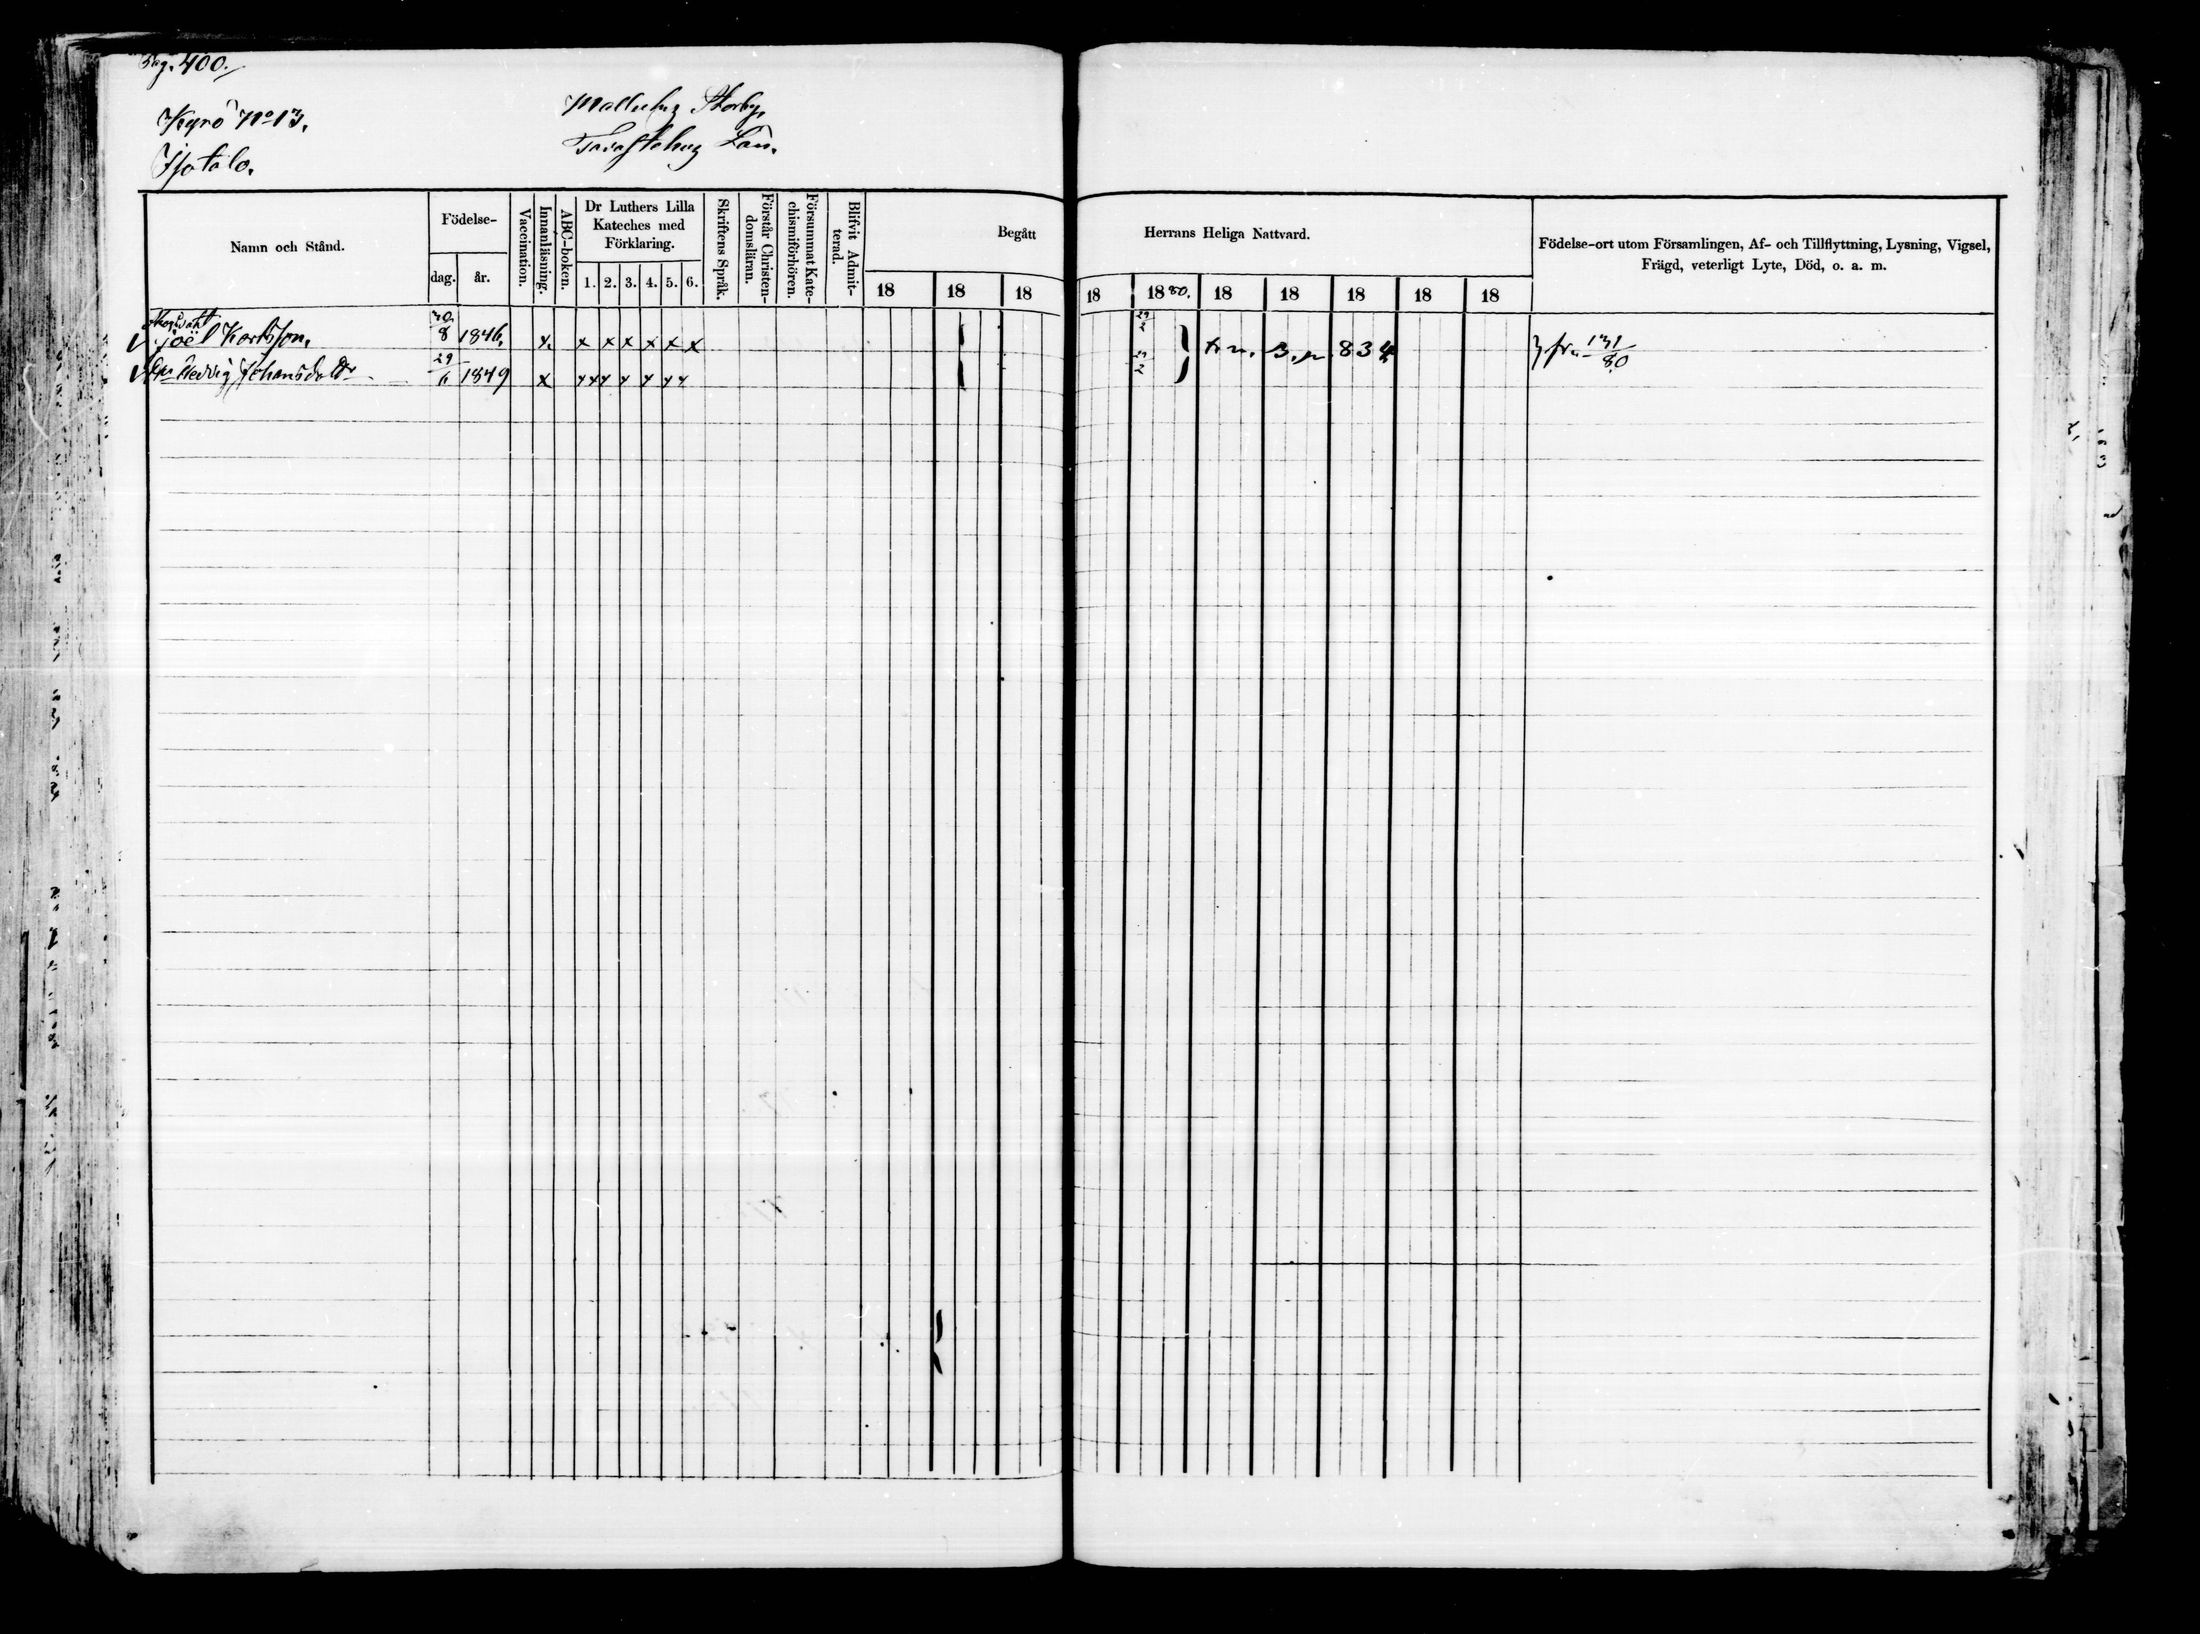 Pag. 400.
Kyrö No 13.
Isotalo.
Storby,
Tavastehus Län.
Namn och Stånd.
Födelse-
dag. år.
Vaccination.
Innanläsning.
ABC-boken.
Dr Luthers Lilla
Kateches med
Förklaring.
1. 2. 3. 4. 5. 6.
Skriftens Språk.
Förstår Christen-
domsläran.
Försummat Kate-
chismiförhören.
Blifvit Admit-
terad.
Begått Herrans Heliga Nattvard.
18 18 18 18 1880. 18 18 18 18 18
Födelse-ort utom Församlingen, Af- och Tillflyttning, Lysning, Vigsel,
Frägd, veterligt Lyte, Död, o. a. m.
Joël Karlsson. 8 1846. x. x x x x x x
Hedvig Johansdotter 29/6 1849 x
834
fr. 131/80